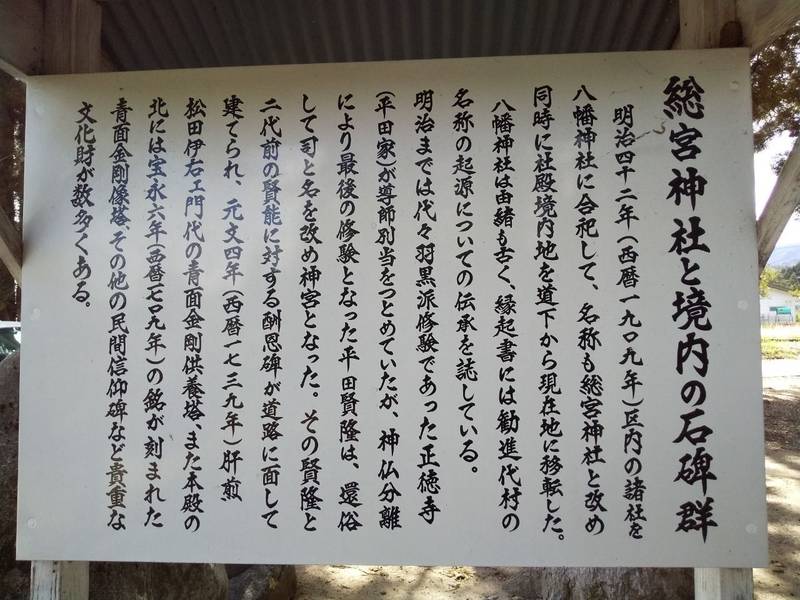 総宮神社と境内の石碑群
明治四十二年(西暦一九〇九年)区内の諸社を
八幡神社に合祀して、名称も総宮神社と改め
同時に社殿境内地を道下から現在地に移転した。
八幡神社は由緒も古く、縁起書には勧進代村の
名称の起源についての伝承を誌している。
明治までは代々羽黒派修験であった正徳寺
(平田家)が導師別当をつとめていたが、神仏分離
により最後の修験となった平田賢隆は、還俗
して司と名を改め神宮となった。その賢隆と
二代前の賢能に対する酬恩碑が道路に面して
建てられ、元文四年(西暦一七三九年)肝煎
松田伊右エ門代の青面金剛供養塔、また本殿の
北には宝永六年(西暦一七〇九年)の銘が刻まれた
青面金剛像塔、その他の民間信仰碑など貴重な
文化財が数多くある。